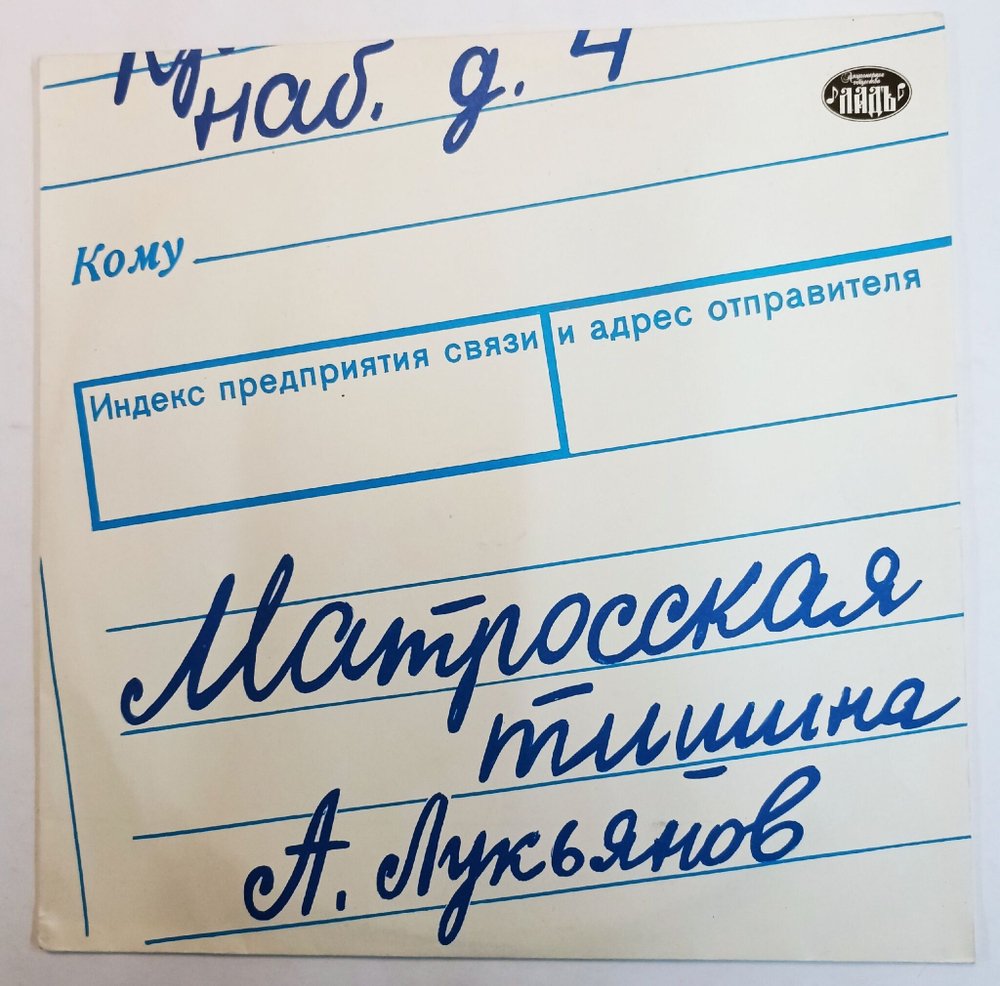 наб. д. 4
Акционерное
общество
ЛАДЪ
Кому
Индекс предприятия связи и адрес отправителя
Матросская
тишина
А. Лукьянов